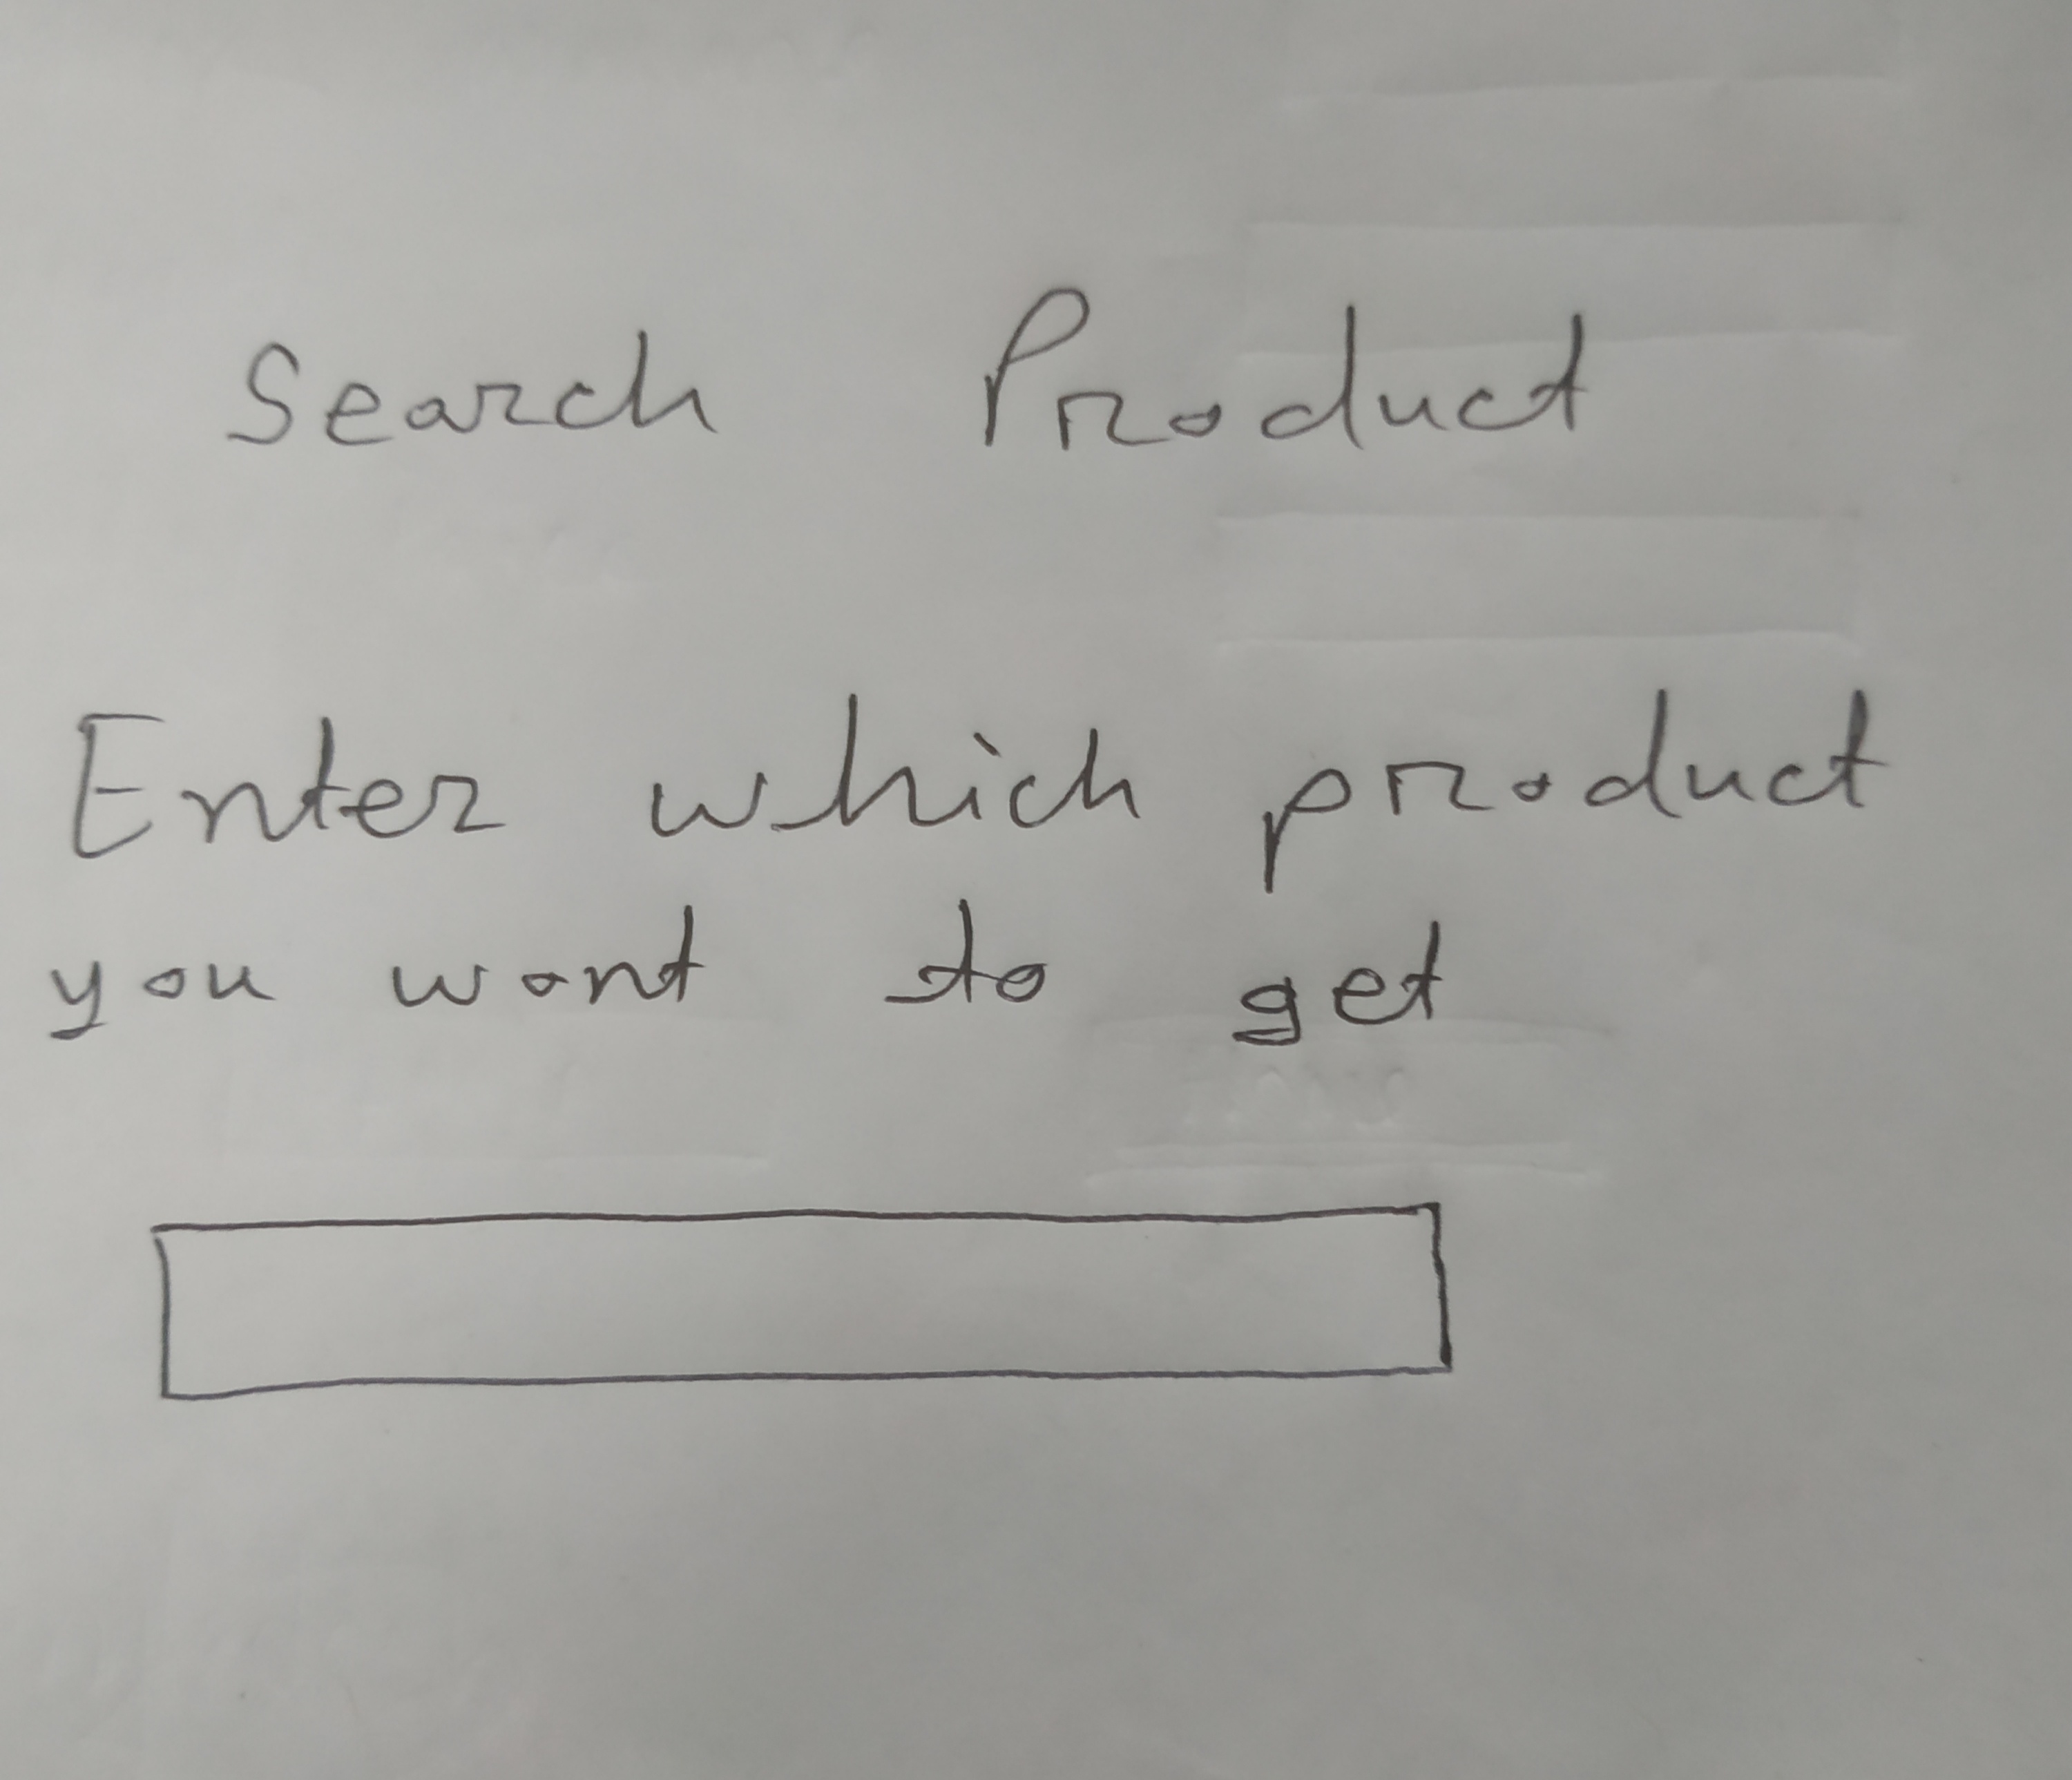 Search Product
Enter which product
you want to get